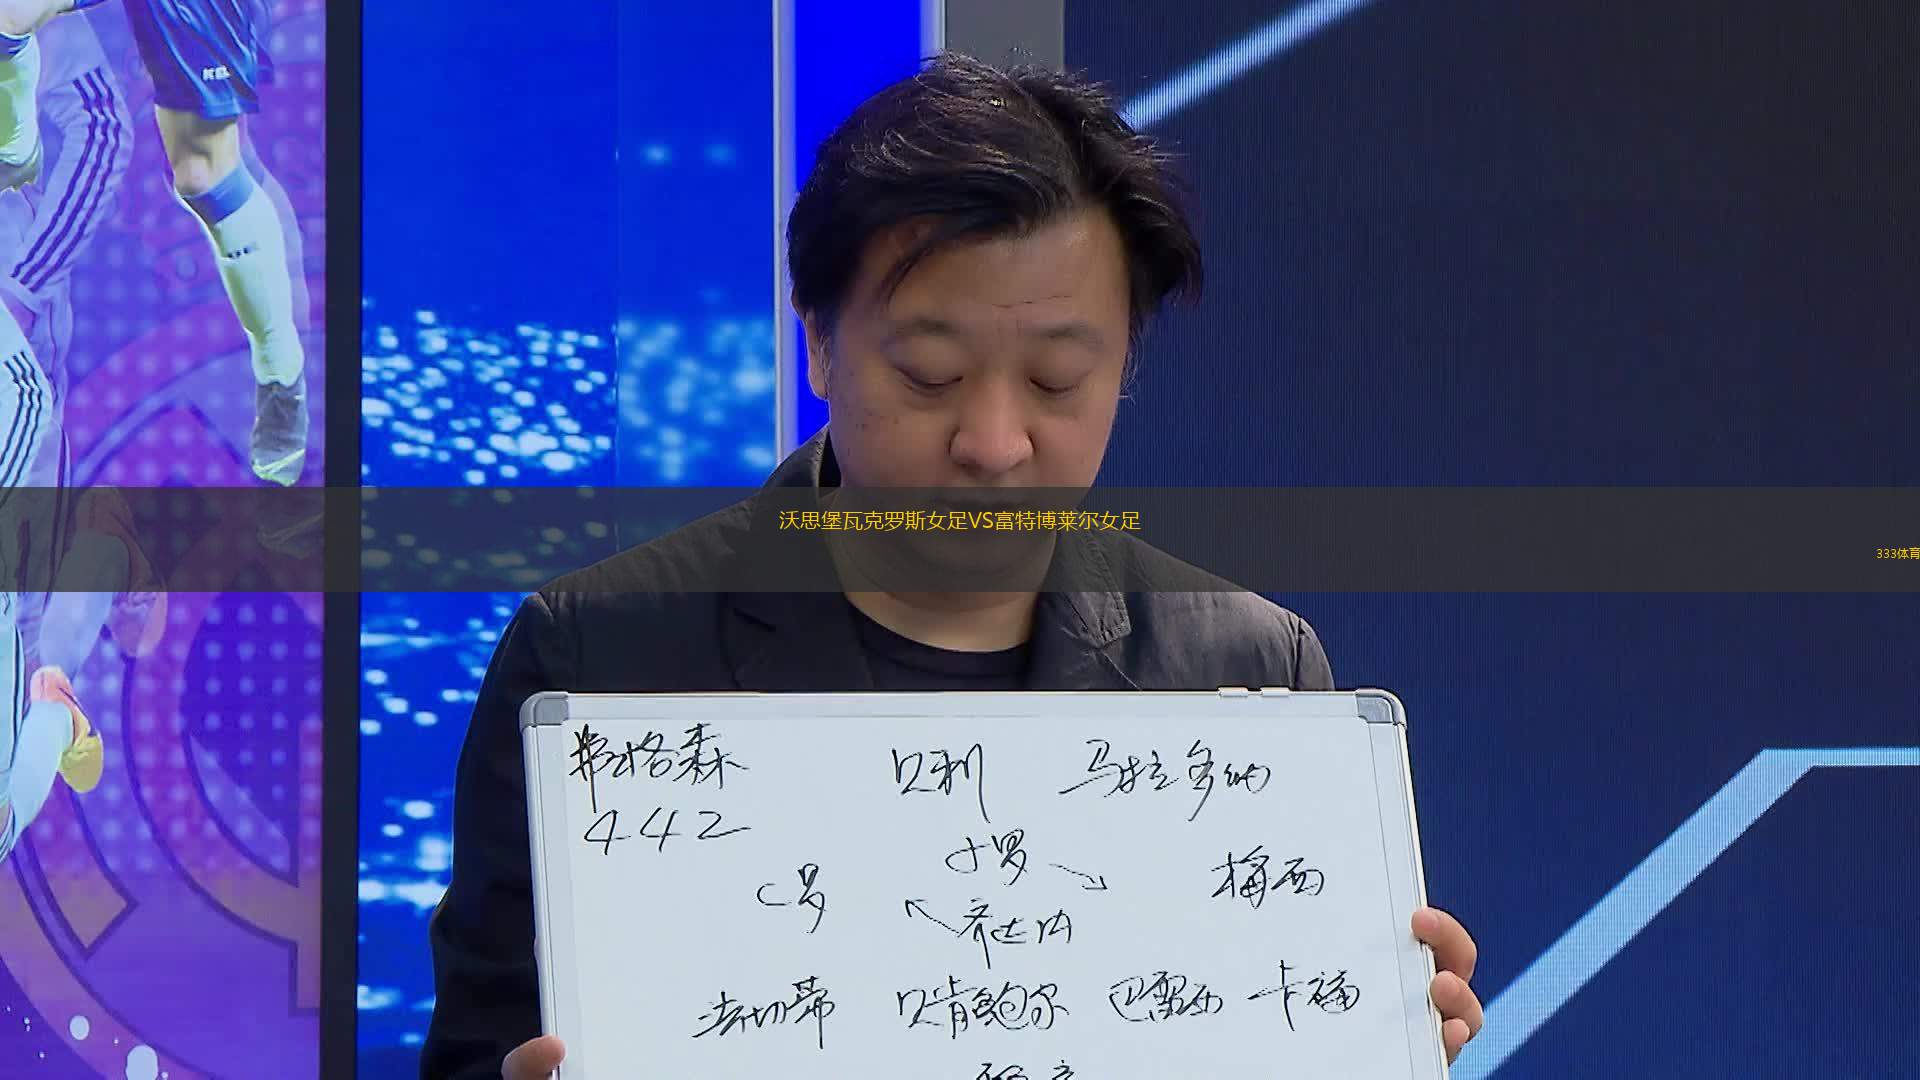 沃思堡瓦克罗斯女足VS富特博莱尔女足
333体育
弗格森 贝利 马拉多纳
442
小罗
C罗 梅西
齐达内
法切蒂 贝肯鲍尔 巴雷西 卡福